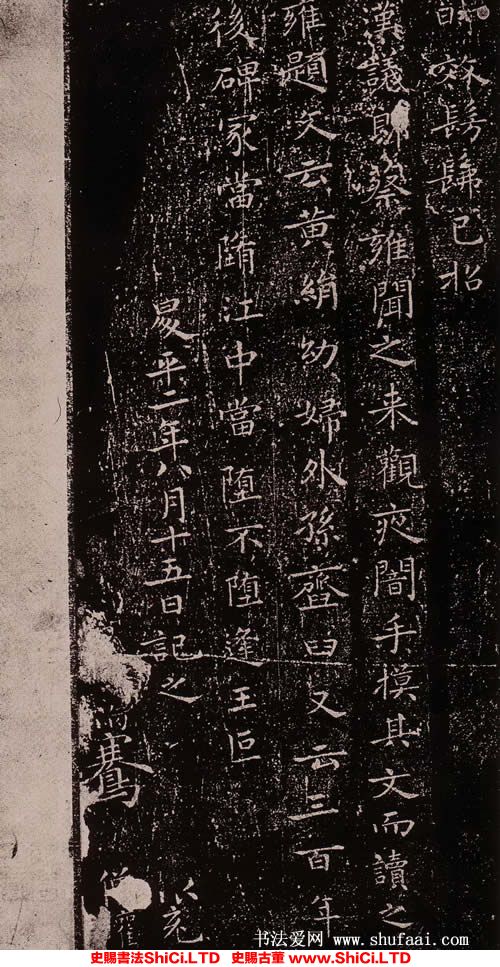 效髣髴已
漢議郎蔡雍聞之来觀夜闇手摸其文而讀之
雍題文云黃絹幼婦外孫齏臼又云三百年
後碑冢當墮江中當墮不墮逢王叵
昇平二年八月十五日記之
充
騫
僧權
书法爱网 www.shufaai.com
史賜書法ShiCi.LTD 史賜古董 www.ShiCi.LTD